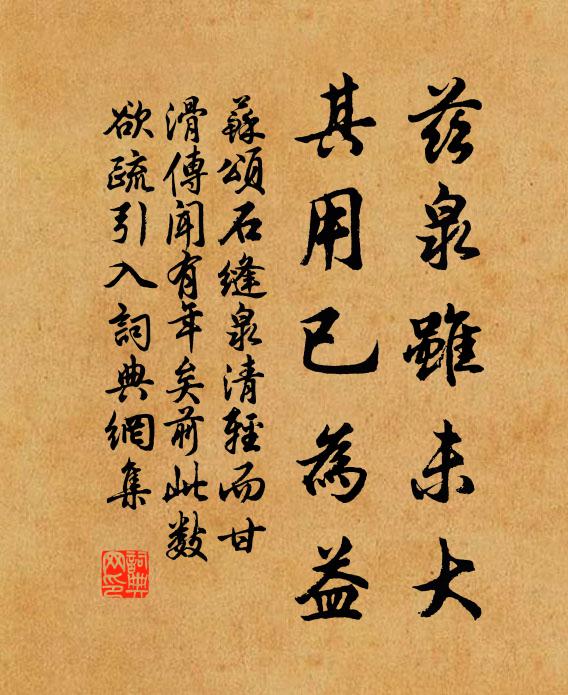 茲泉雖未大
其用已為益
蘇頌石縫泉清輕而甘
滑傳聞有年矣前此數
欲疏引入詞典網集
詞典
网印